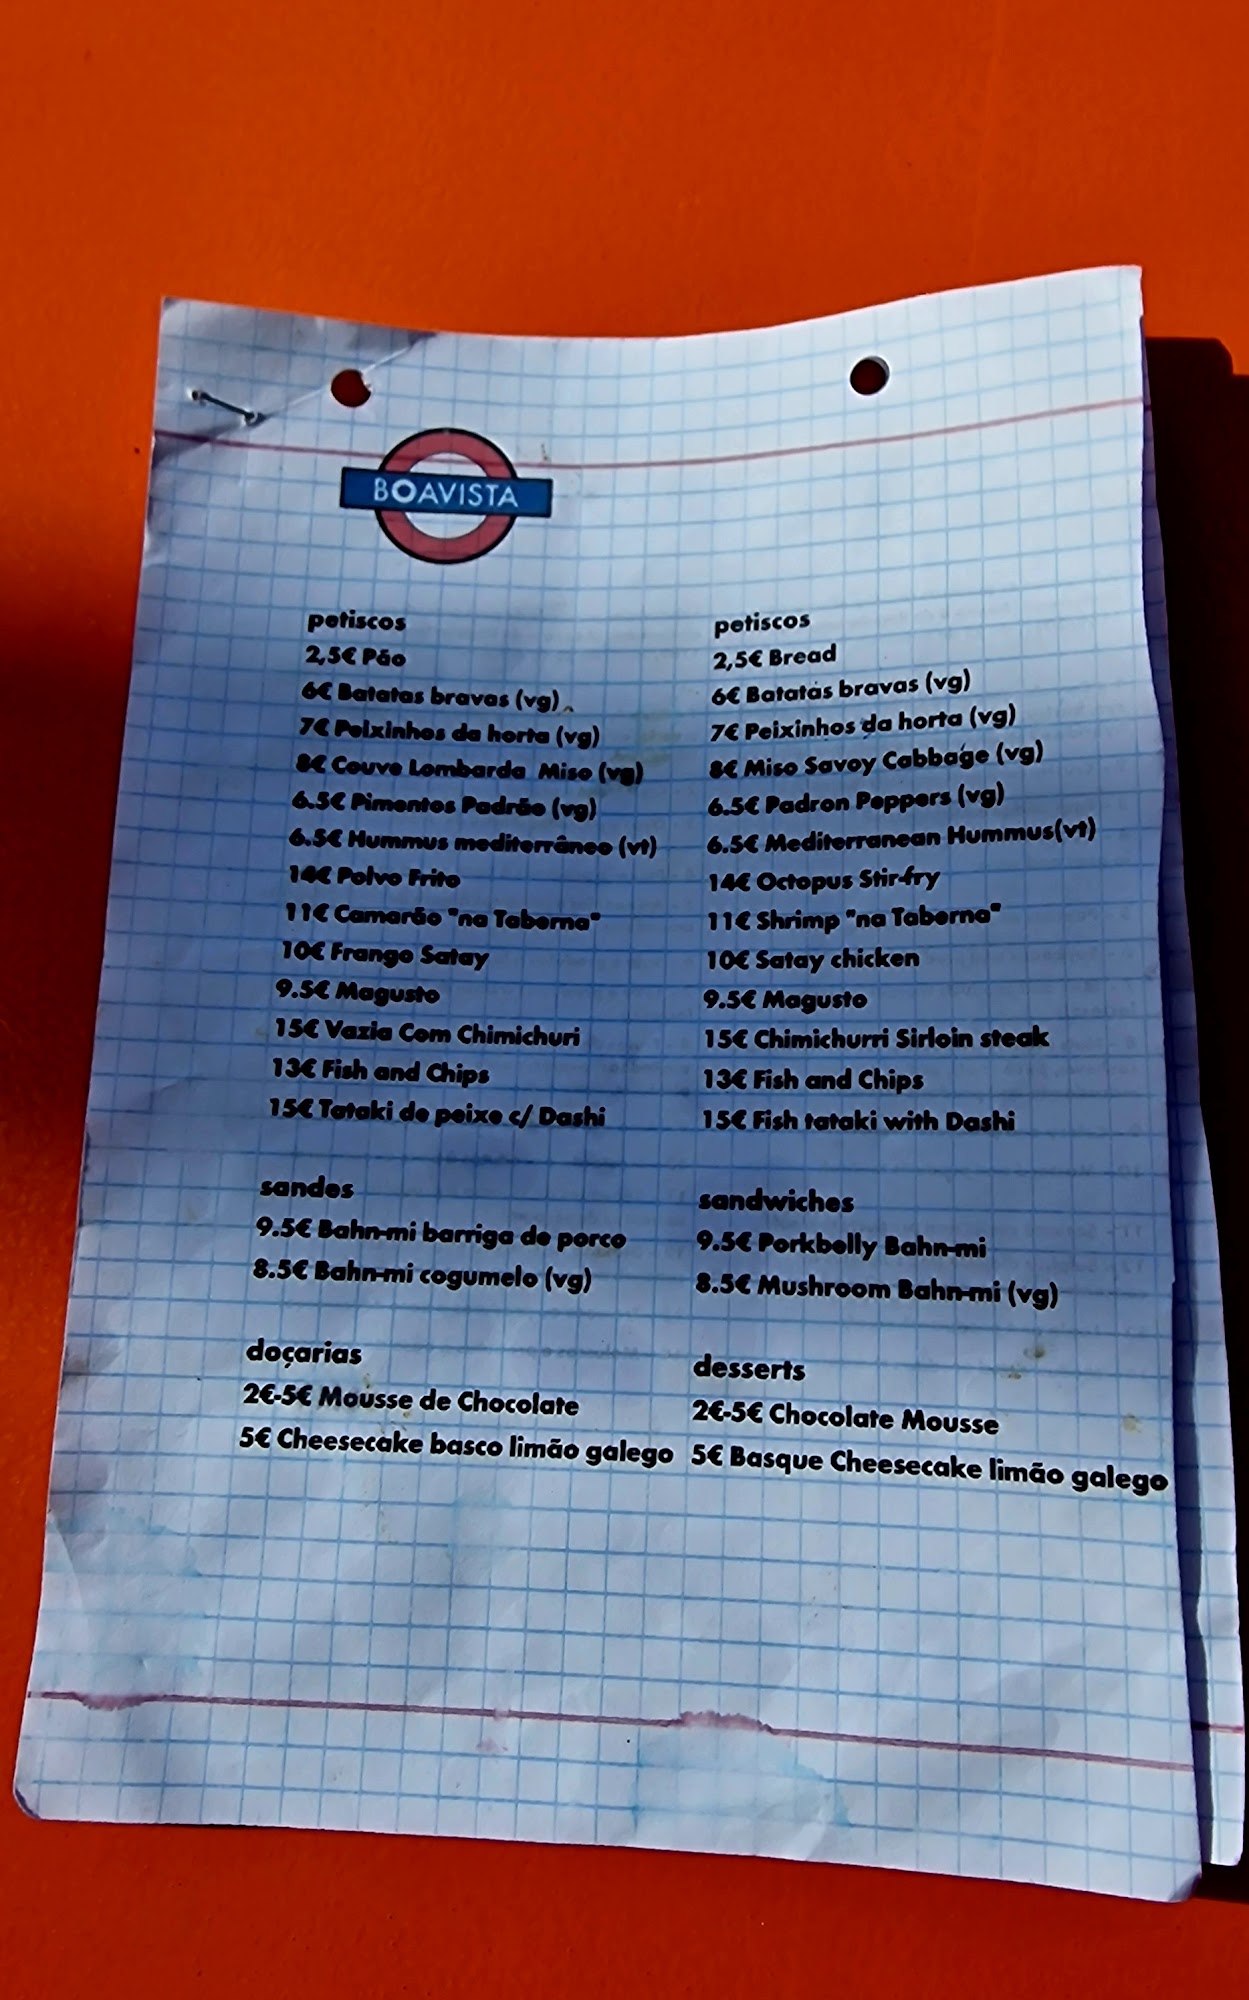 BOAVISTA
petiscos
2,5€ Pão
6€ Batatas bravas (vg)
7€ Peixinhos da horta (vg)
8€ Couve Lombarda Miso (vg)
6.5€ Pimentos Padrão (vg)
6.5€ Hummus mediterrâneo (vt)
14€ Polvo Frito
11€ Camarão "na Taberna"
10€ Frango Satay
9.5€ Magusto
15€ Vazia Com Chimichuri
13€ Fish and Chips
15€ Tataki de peixe c/ Dashi
sandes
9.5€ Bahn-mi barriga de porco
8.5€ Bahn-mi cogumelo (vg)
doçarias
2€-5€ Mousse de Chocolate
5€ Cheesecake basco limão galego
petiscos
2,5€ Bread
6€ Batatas bravas (vg)
7€ Peixinhos da horta (vg)
8€ Miso Savoy Cabbage (vg)
6.5€ Padron Peppers (vg)
6.5€ Mediterranean Hummus(vt)
14€ Octopus Stir-fry
11€ Shrimp "na Taberna"
10€ Satay chicken
9.5€ Magusto
15€ Chimichurri Sirloin steak
13€ Fish and Chips
15€ Fish tataki with Dashi
sandwiches
9.5€ Porkbelly Bahn-mi
8.5€ Mushroom Bahn-mi (vg)
desserts
2€-5€ Chocolate Mousse
5€ Basque Cheesecake limão galego